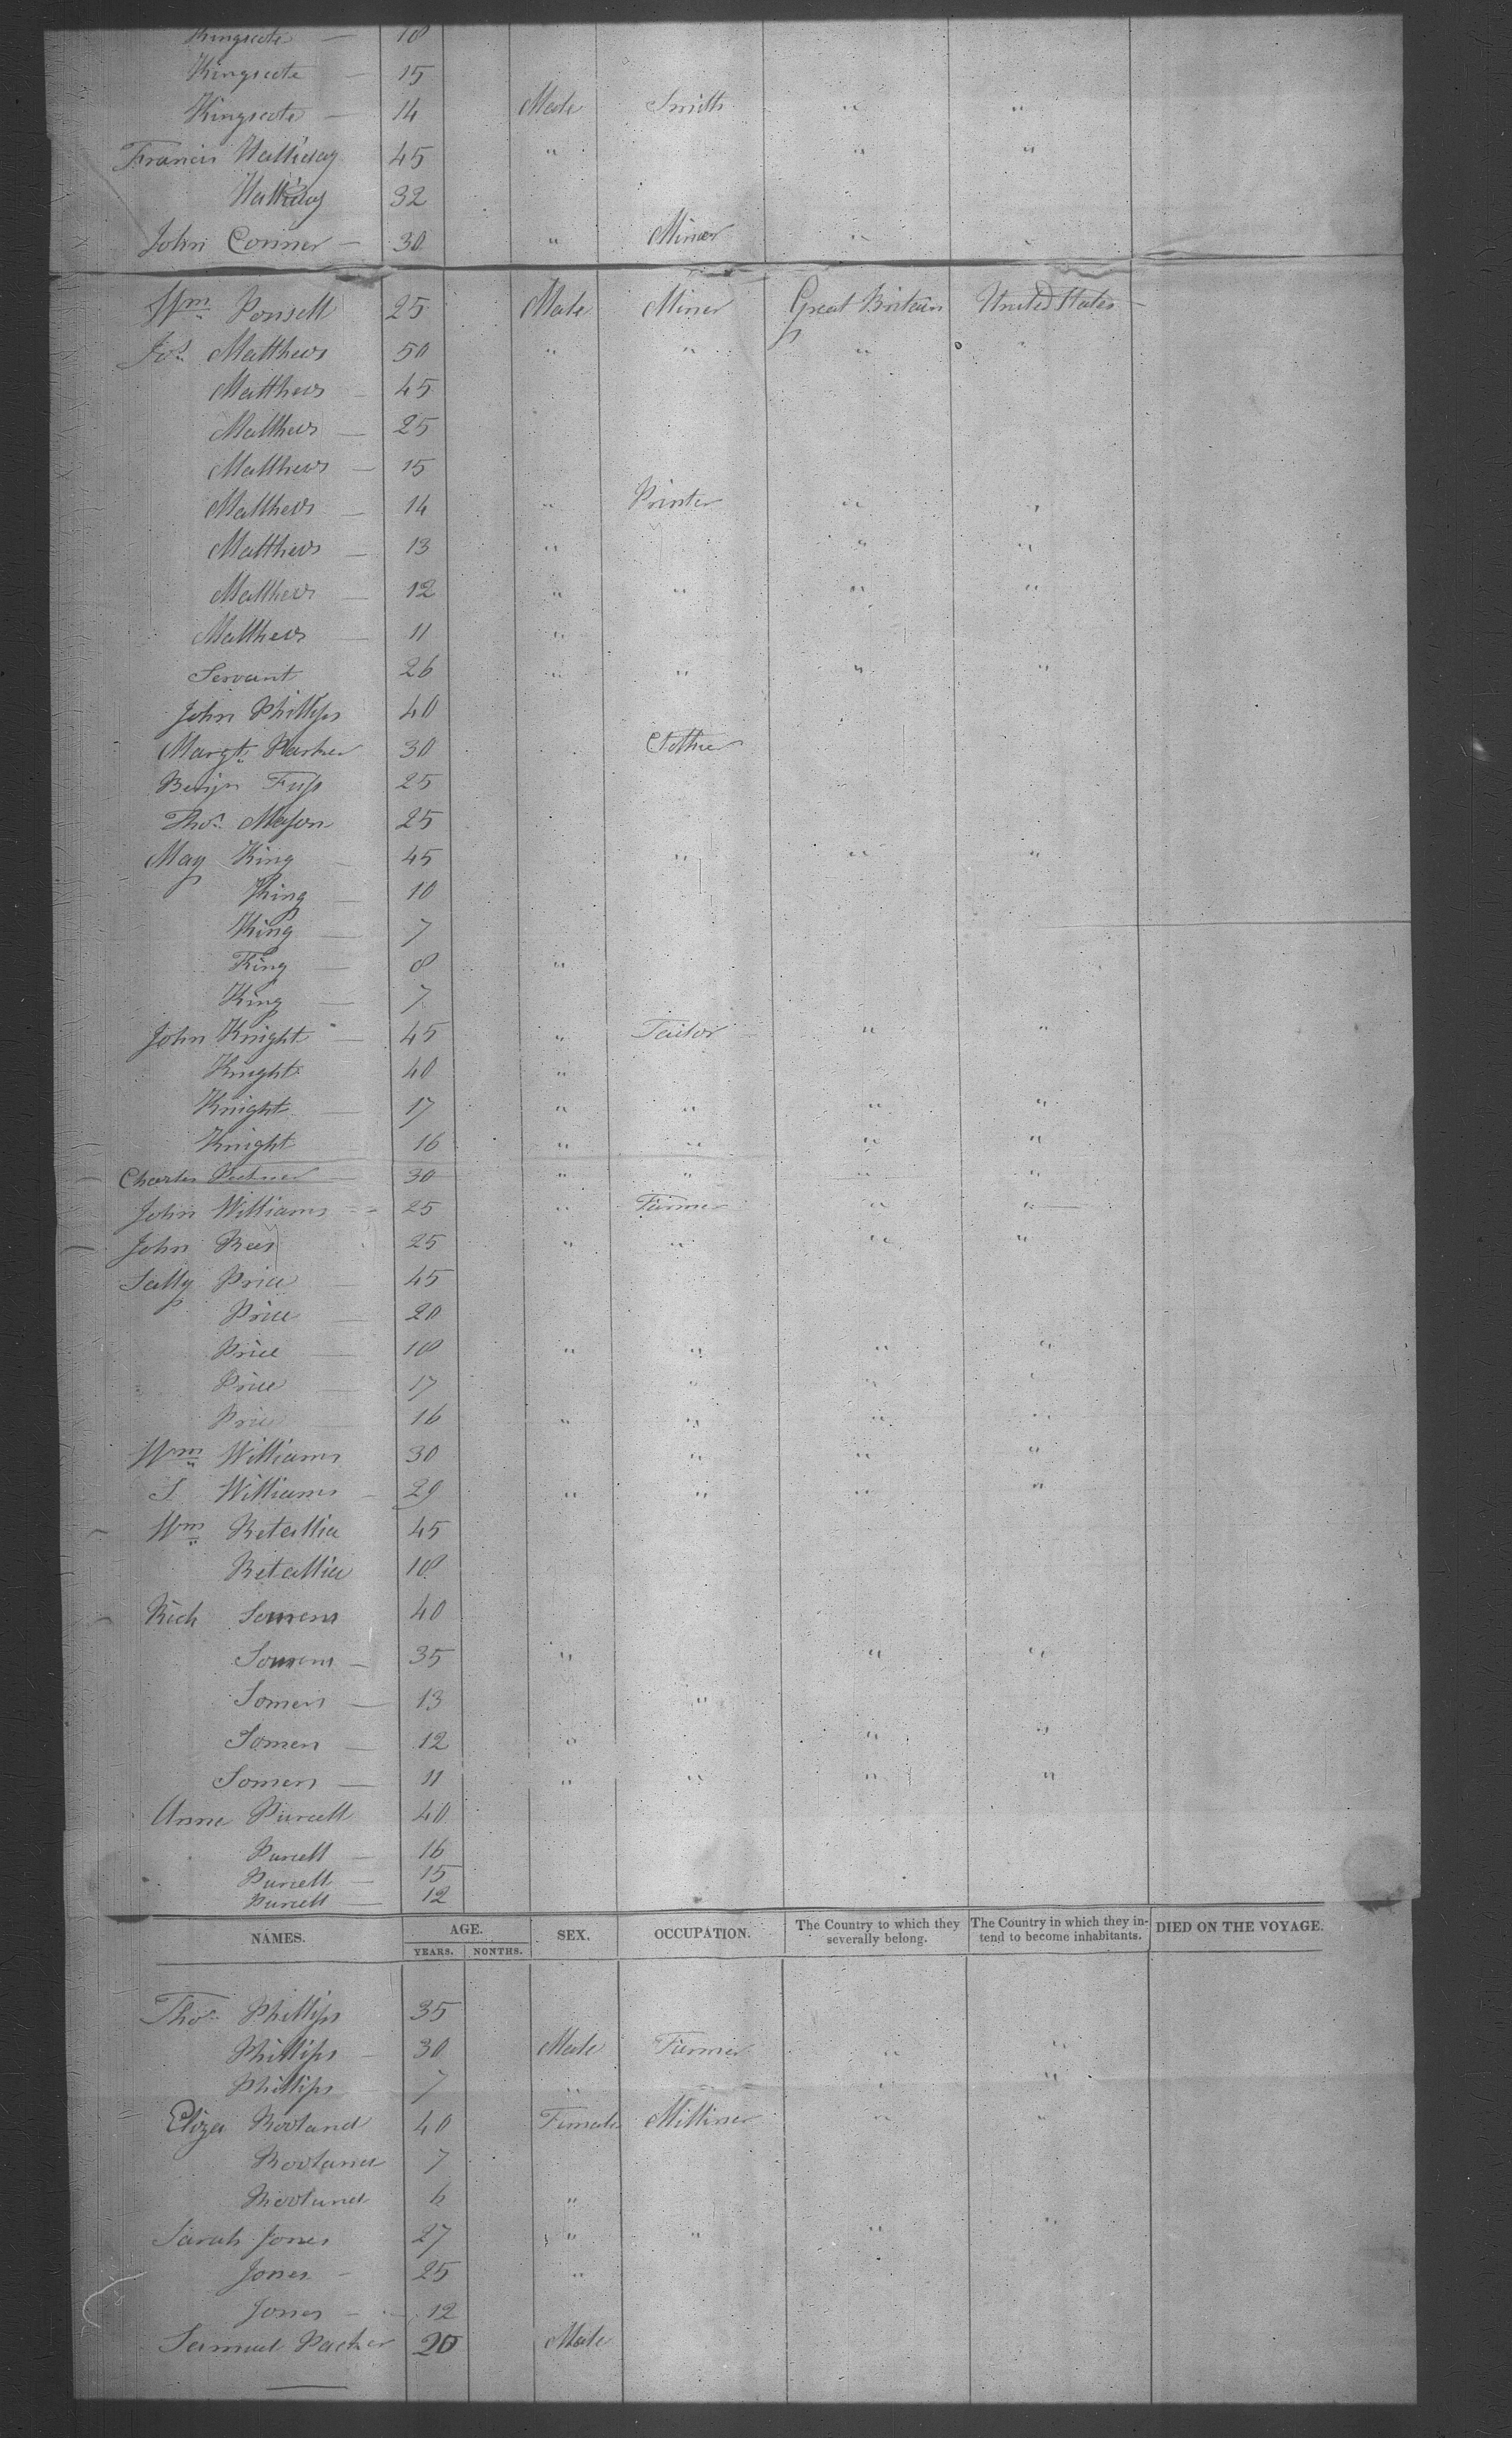 Kingscote — 18
Kingscote — 15
Kingscote — 14 Male Smith " "
Francis Halliday 45 " " "
Halliday 32
John Conner — 30 " Miner " "
Wm Ponsell 25 Male Miner Great Britain United States —
Jos. Matthews 50 " " "
Matthews — 45
Matthews — 25
Matthews — 15
Matthews — 14 " Printer " "
Matthews — 13 " " "
Matthews — 12 " " " "
Matthews — 11 "
Servant 26 " " " "
John Phillips 40
Margt. Parker 30 Clothier
Benjn 25
Thos. Mason 25
May King — 45 " " "
King — 10
King — 7
King — 8 "
King — 7
John Knight — 45 " Tailor " "
Knight 40 "
Knight — 17 " " " "
Knight 16 " " " "
Charles 30 " " " "
John Williams -- 25 " Farmer " "
John Rees 25 " " " "
Sally Price — 45
Price — 20
Price — 18 " " " "
Price — 17 " " "
Price — 16 " " " "
Wm Williams 30 " " "
S Williams — 29 " " " "
Wm Retallia 45
Retallia 18
Rich Somers 40
Somers — 35 " " "
Somers — 13 "
Somers — 12 " " "
Somers — 11 " " " "
Anne Purcell 40
Purcell — 16
Purcell — 15
Purcell — 12
NAMES. AGE. YEARS. NONTHS. SEX. OCCUPATION. The Country to which they severally belong. The Country in which they intend to become inhabitants. DIED ON THE VOYAGE.
Thos. Phillips 35
Phillips — 30 Male Farmer " "
Phillips 7 " " "
Eliza Rowland 40 Female Milliner " "
Rowland 7
Rowland 6 "
Sarah Jones 27 " " " "
Jones - 25 "
Jones - - 12
Samuel Packer 20 Male